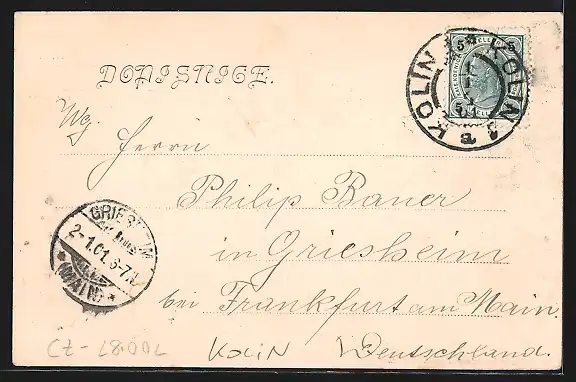 KOLIN KOLIN
5 5
a
DOPISNICE.
Wg. Herrn
Philip Bauer
in Griesheim
GRIESHEIM
2-1.01.6-7N
* (MAIN) *
bei Frankfurt am Main.
KOLIN Deutschland.